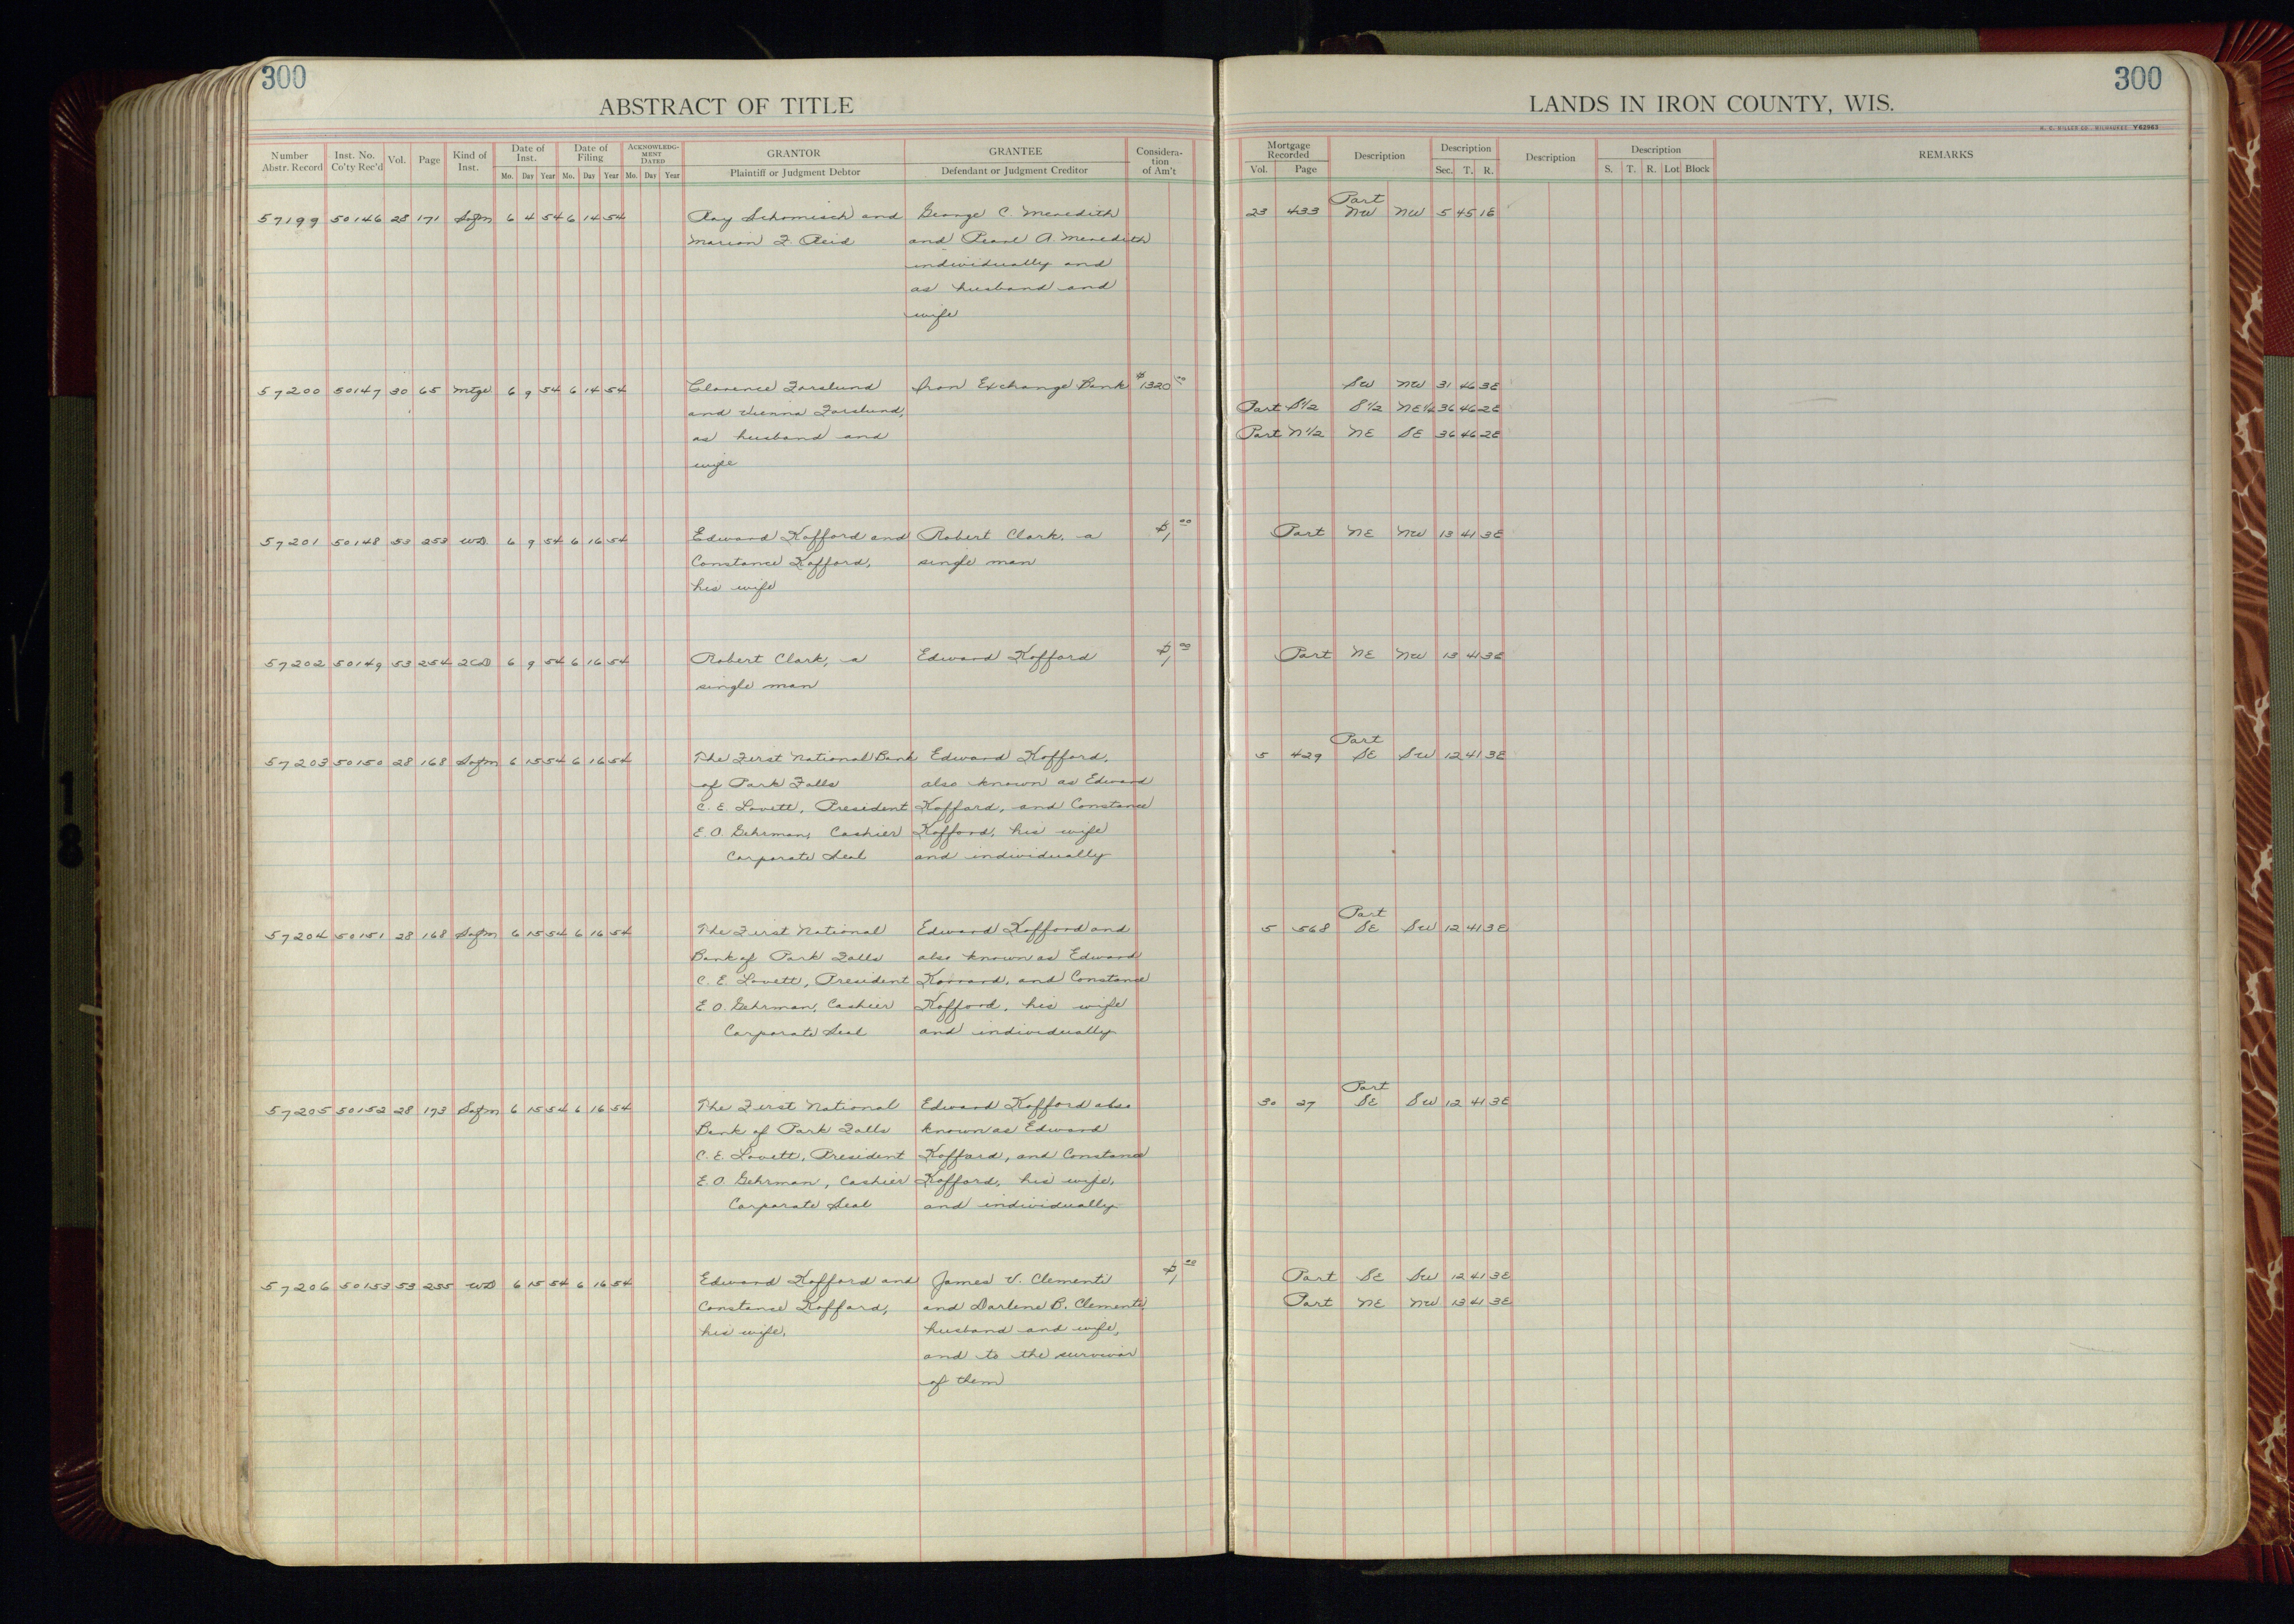 300
300
ABSTRACT OF TITLE
LANDS IN IRON COUNTY, WIS.
H. C. MILLER CO., MILWAUKEE Y62963
Number Abstr. Record Inst. No. Co'ty Rec'd Vol. Page Kind of Inst. Date of Inst. Mo. Day Year Date of Filing Mo. Day Year ACKNOWLEDGMENT DATED Mo. Day Year GRANTOR Plaintiff or Judgment Debtor GRANTEE Defendant or Judgment Creditor Consideration of Am't Mortgage Recorded Vol. Page Description Description Sec. T. R. Description Description S. T. R. Lot Block REMARKS
57199 50146 28 171 Sofm 6 4 54 6 14 54 Ray Schomisch and George C. Meredith 23 433 Part NW NW 5 45 1E
Marion F. Reid and Pearl A. Meredith
individually and
as husband and
wife
57200 50147 30 65 Mtge 6 9 54 6 14 54 Clarence Forslund Iron Exchange Bank $1320 00 SW NW 31 46 3E
and Vienna Forslund, Part S1/2 S1/2 NE1/4 36 46 2E
as husband and Part N1/2 NE SE 36 46 2E
wife
57201 50148 53 253 WD 6 9 54 6 16 54 Edward Kofford and Robert Clark, a $1 00 Part NE NW 13 41 3E
Constance Kofford, single man
his wife
57202 50149 53 254 2CD 6 9 54 6 16 54 Robert Clark, a Edward Kofford $1 00 Part NE NW 13 41 3E
single man
57203 50150 28 168 Sofm 6 15 54 6 16 54 The First National Bank Edward Kofford, 5 429 Part SE SW 12 41 3E
of Park Falls also known as Edward
C. E. Lovett, President Koffard, and Constance
E. O. Gehrman, Cashier Kofford, his wife
Corporate Seal and individually
57204 50151 28 168 Sofm 6 15 54 6 16 54 The First National Edward Kofford and 5 568 Part SE SW 12 41 3E
Bank of Park Falls also known as Edward
C. E. Lovett, President and Constance
E. O. Gehrman, Cashier Kofford, his wife
Corporate Seal and individually
57205 50152 28 173 Sofm 6 15 54 6 16 54 The First National Edward Kofford also 30 27 Part SE SW 12 41 3E
Bank of Park Falls known as Edward
C. E. Lovett, President Koffard, and Constance
E. O. Gehrman, Cashier Kofford, his wife,
Corporate Seal and individually
57206 50153 53 255 WD 6 15 54 6 16 54 Edward Kofford and James V. Clementi $1 00 Part SE SW 12 41 3E
Constance Kofford, and Darlene B. Clementi Part NE NW 13 41 3E
his wife, husband and wife,
and to the survivor
of them
18